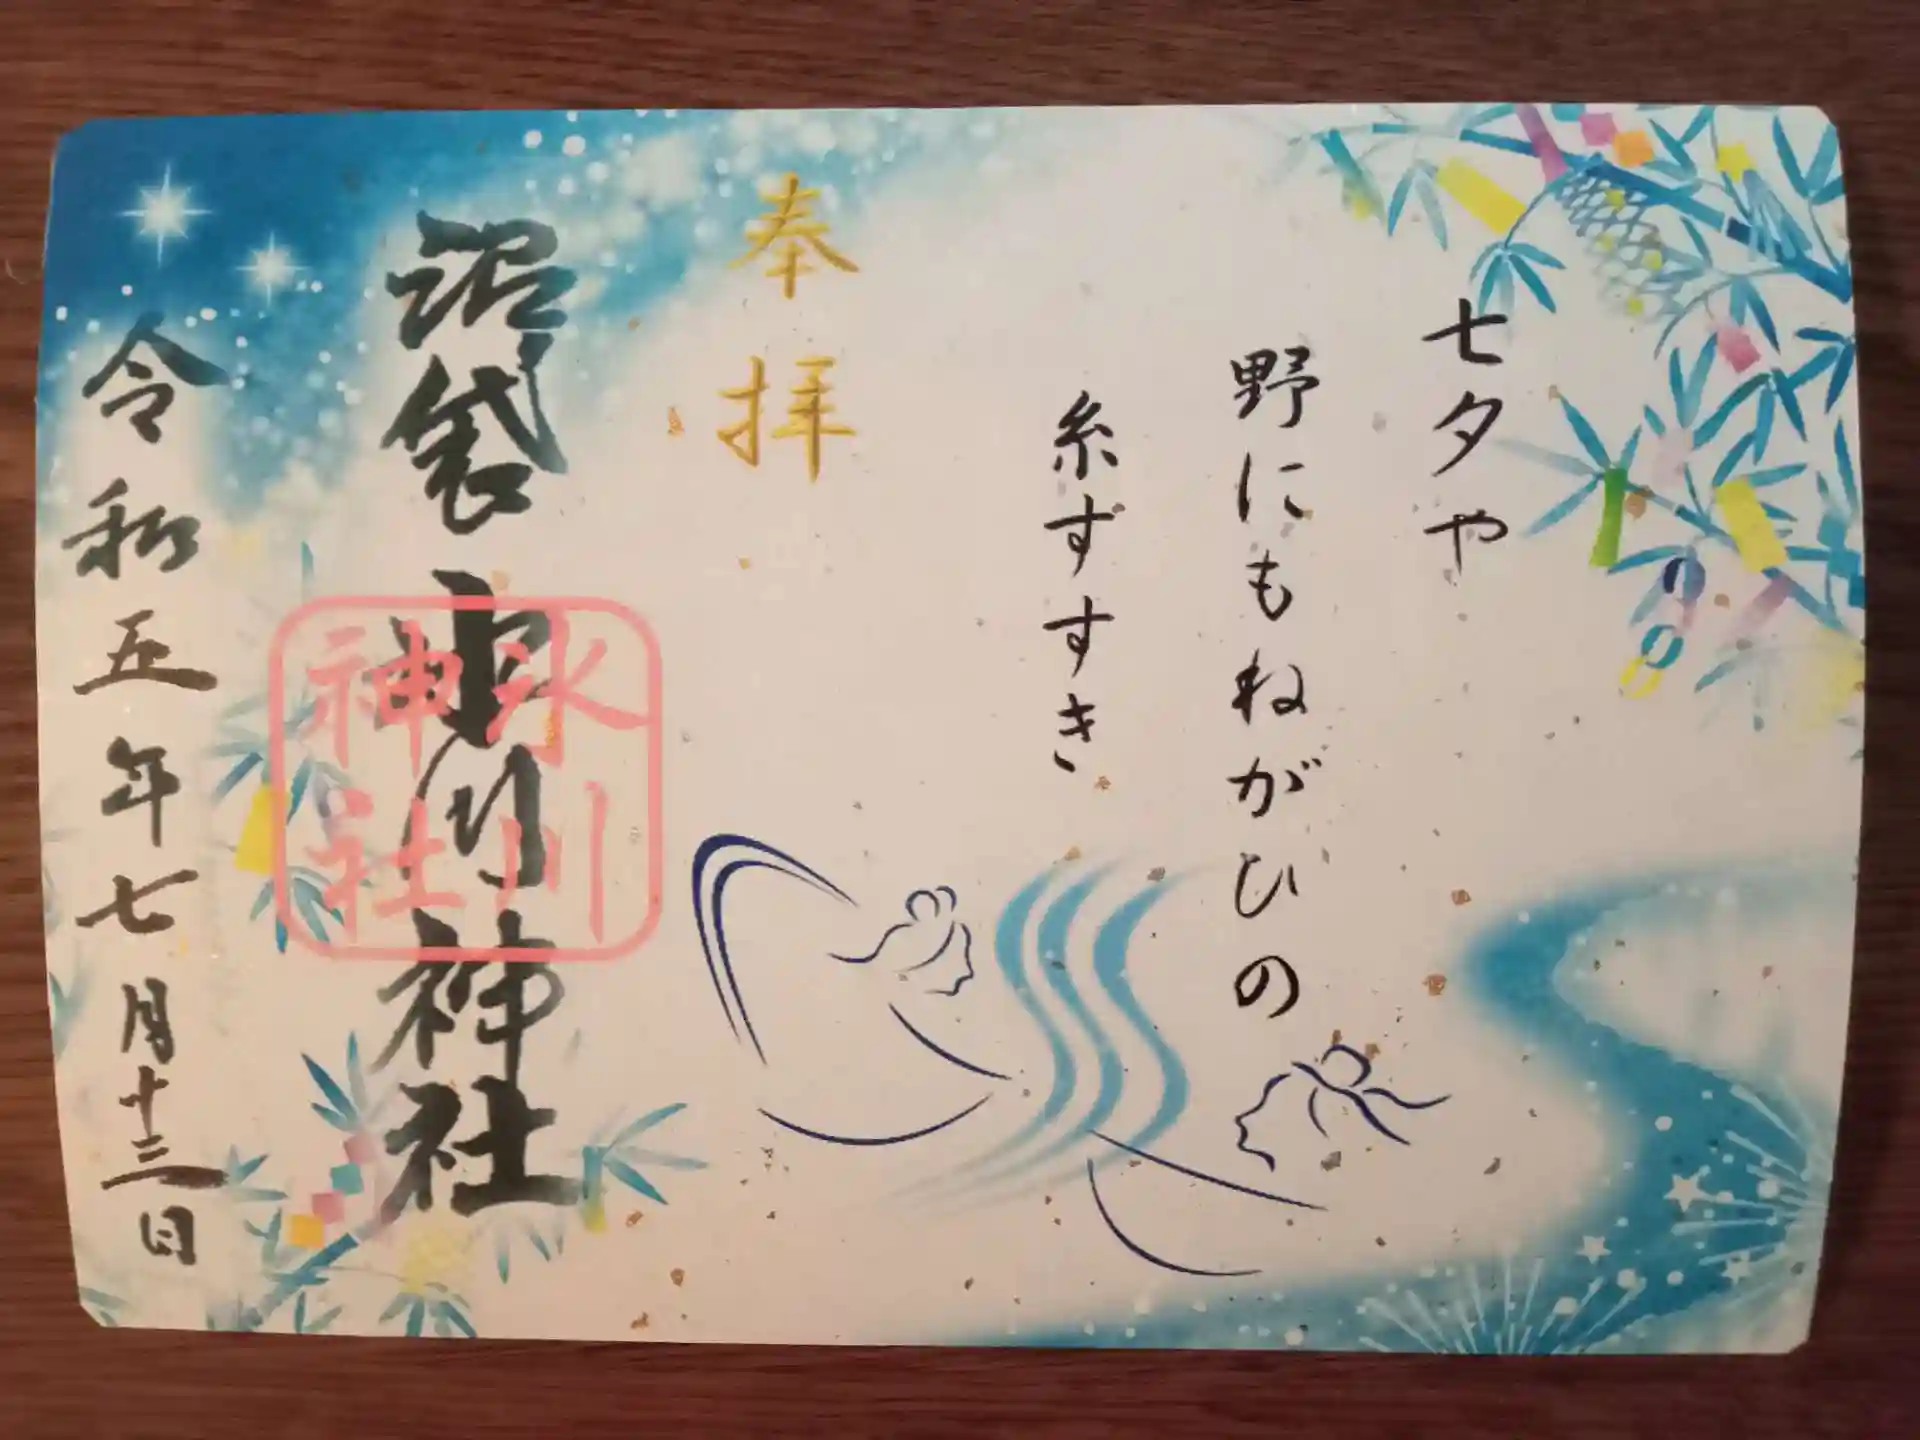 七夕や
野にもねがひの
糸すすき
奉拝
沼袋氷川神社
氷川
神社
令和五年七月十三日